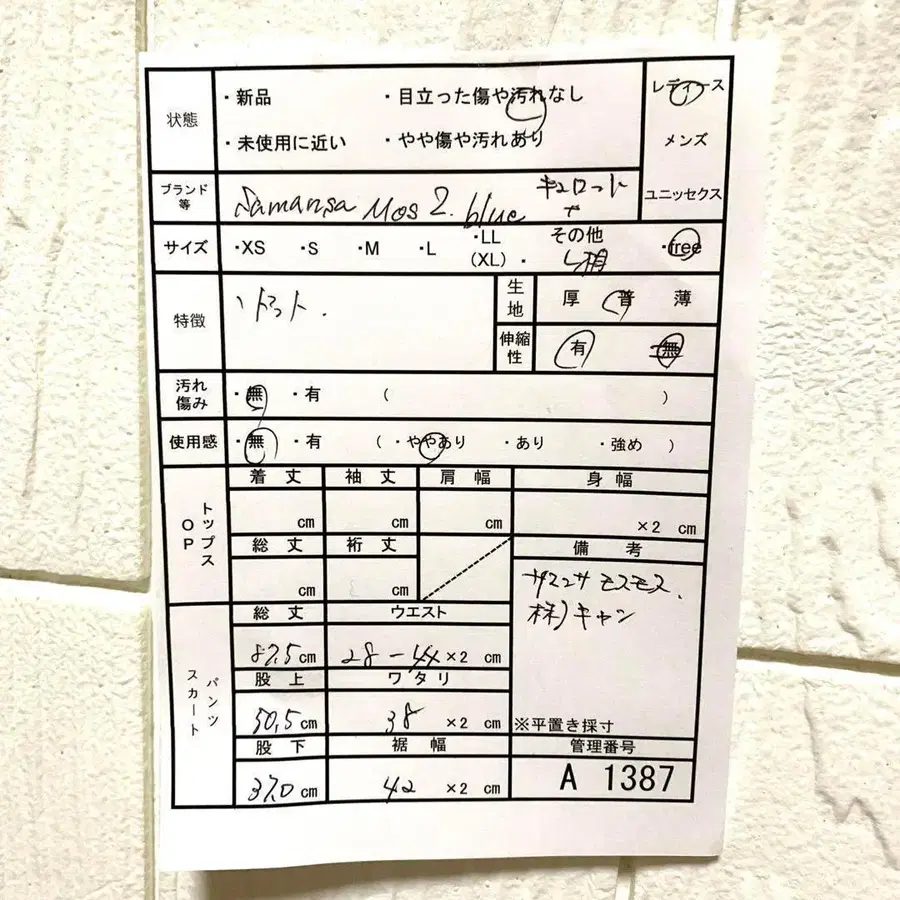 状態 ・新品 ・目立った傷や汚れなし レディース
・未使用に近い ・やや傷や汚れあり メンズ
ユニッセクス
ブランド等 Samansa Mos2. blue キュロット
サイズ ・XS ・S ・M ・L ・LL (XL) ・その他 ・free
特徴 ドット. 生地 厚 普 薄
伸縮性 有 無
汚れ傷み ・無 ・有 ( )
使用感 ・無 ・有 ( ・ややあり ・あり ・強め )
トップス OP 着丈 袖丈 肩幅 身幅
cm cm cm ×2 cm
総丈 裄丈 備考
cm cm
サマンサ モスモス.
株)キャン
パンツ スカート 総丈 ウエスト
87.5cm 28-44×2 cm
股上 ワタリ
50.5cm 38 ×2 cm ※平置き採寸
股下 裾幅 管理番号
37.0cm 42 ×2 cm A 1387